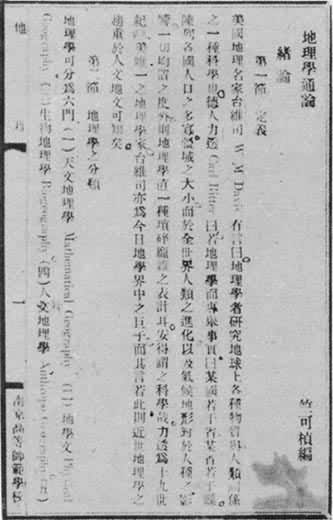 地理學通論
竺可楨編
緒論
第一節 定義
美國地理名家台維司 W. M. Davis 有言曰地理學者研究地球上各種物質與人類關係
之一種科學也德人力透 Carl Ritter 曰若地理學而專聚事實曰某國若干省某省若干縣
陳列各國人口之多寡領域之大小而於全世界人類之進化以及氣候地形對於人種之影
響一切均謂之度外則地理學直一種瑣碎龐雜之表計耳安得謂之科學哉力透爲十九世
紀之美唯一之地理學家台維司亦爲今日地學界中之巨子而其言若此則近世地理學之
趨重於人文地文可知矣
第二節 地理學之分類
地理學可分爲六門（一）天文地理學 Mathematical Geography（二）地學文
Geography（三）生物地理學 Biogeography（四）人文地理學 Anthropo Geography（五）
地
一
南京高等師範學校